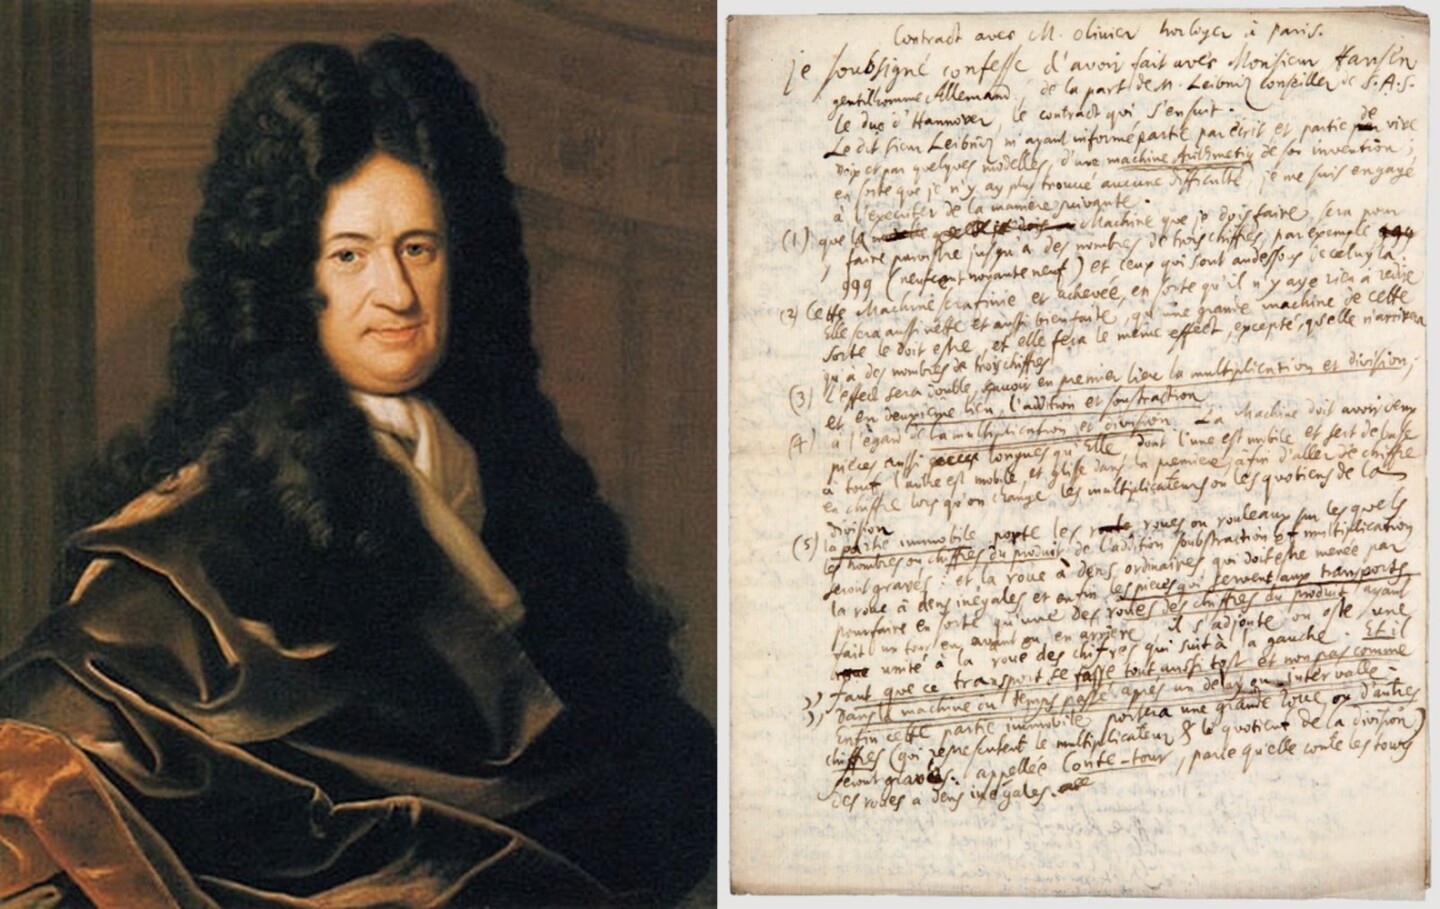 Contract avec M. Olivier horloger à Paris.
je soubsigné confesse d'avoir fait avec Monsieur Hansen
gentilhomme Allemand, de la part de M. Leibniz conseiller de S.A.S.
le duc d'Hannover, le contract qui s'ensuit.
Le dit sieur Leibniz m'ayant informé partie par écrit et partie de vive
voix et par quelques modelles, d'une machine Arithmetiq de son invention,
en sorte que je n'y ay plus trouvé aucune difficulté, je me suis engagé
à l'executer de la maniere suivante.
(1) que la Machine que je dois faire, sera pour
faire paroistre jusqu'à des nombres de trois chiffres, par exemple
999 (neufcent nonante neuf) et ceux qui sont audessous de celuy la.
(2) Cette Machine sera finie et achevée, en sorte qu'il n'y aye rien à redire
Elle sera aussi nette et aussi bien faite, qu'une grande machine de cette
sorte le doit estre, et elle fera le même effect, excepté, qu'elle n'arrivera
qu'à des nombres de trois chiffres
(3) l'effect sera double, sçavoir en premier lieu la multiplication et division,
et en deuxième lieu, l'addition et soustraction
(4) à l'égard de la multiplication et division. La Machine doit avoir deux
pieces aussi longues qu'Elle, dont l'une est mobile et sert de base
à tout, l'autre est mobile, et glisse dans la premiere, afin d'aller de chiffre
en chiffre lors qu'on change les multiplicateurs ou les quotiens de la
division
(5) la partie immobile porte les roues ou rouleaux sur les quels
les nombres ou chiffres du produit de l'addition soubstraction et multiplication
seront gravés: et la roue à dens ordinaires qui doit estre menée par
la roue à dens inégales et enfin les pieces qui servent aux transports
pour faire en sorte qu'une des roues des chiffres du produit ayant
fait un tour en avant ou en arrière il s'adjoute ou oste une
unité à la roue des chifres qui suit à la gauche. Et il
faut que ce transport se fasse tout aussi tost et non pas comme
dans la machine du temps passé apres un delay ou intervalle.
Enfin cette partie immobile portera une grande roue ou d'autres
chiffres (qui representent le multiplicateur & le quotient de la division)
seront gravés: appellée Conte-tour, parce qu'elle conte les tours
des roues à dens inégales.